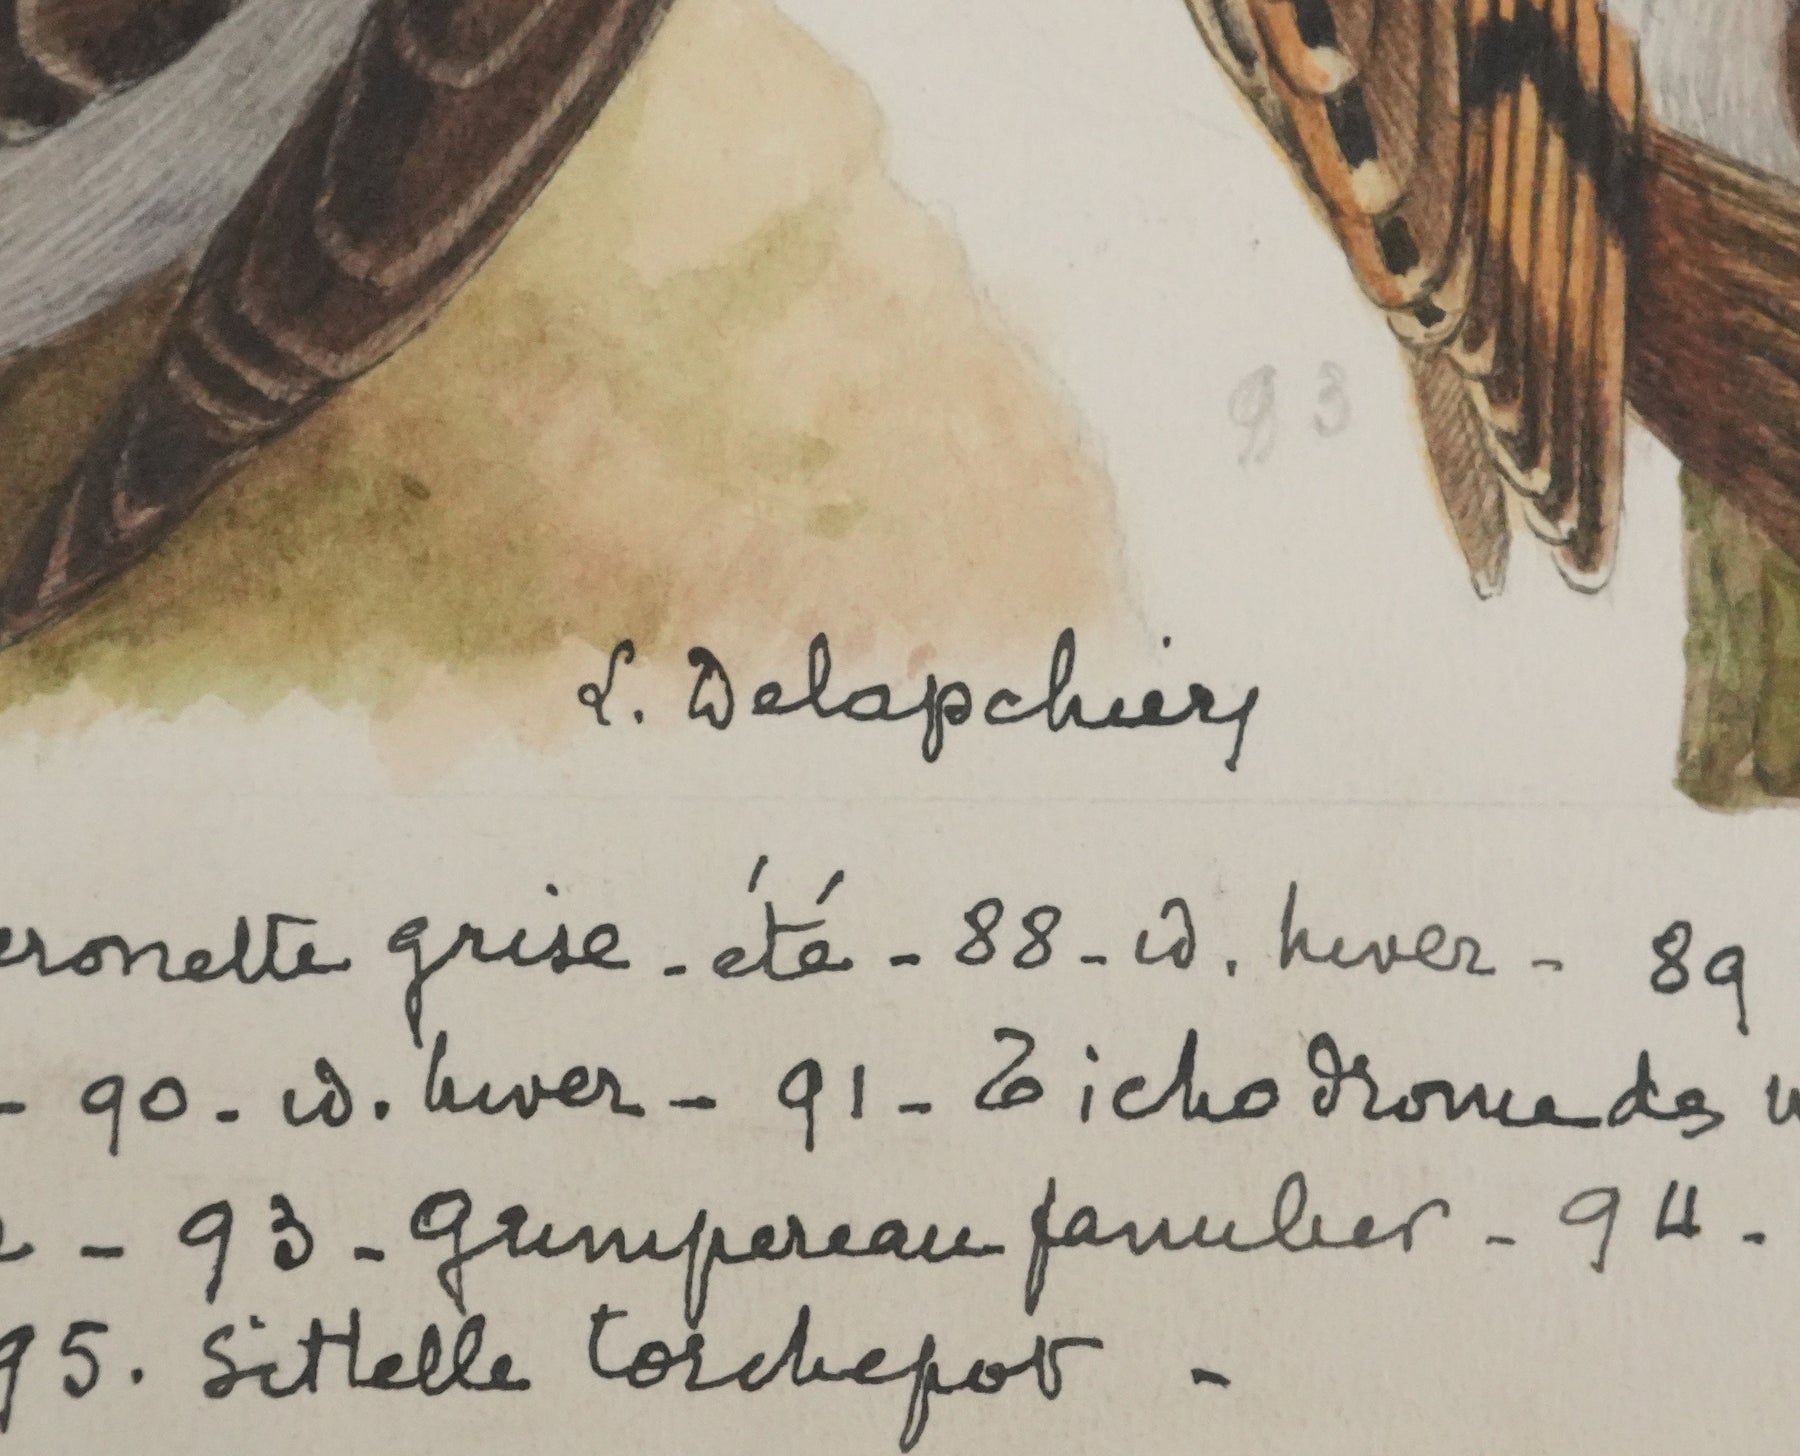 93
L. Delapchier
eronette grise - été - 88 - id. hiver - 89
- 90 - id. hiver - 91 - Tichodrome des
- 93 - Grimpereau familier - 94 -
95. Sittelle torchepot -